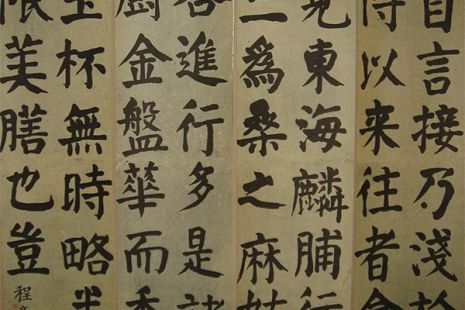 自言接乃淺於
得以来往者
見東海麟脯行
為桑之麻姑
進行多是諸
廚金盤華而香
玉杯無時略半
限美膳也豈
程